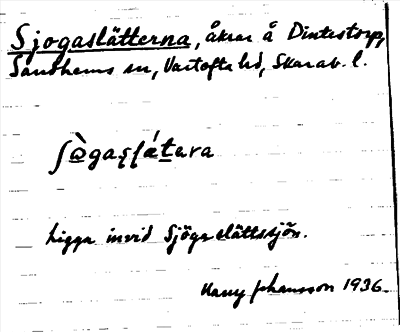 Sjogaslätterna, åkrar å Dintestorp,
Sandhems sn, Vartofta hd, Skarab. l.
ʃàgaşļátara
Ligga invid Sjöga slättssjön.
Harry Johansson 1936.